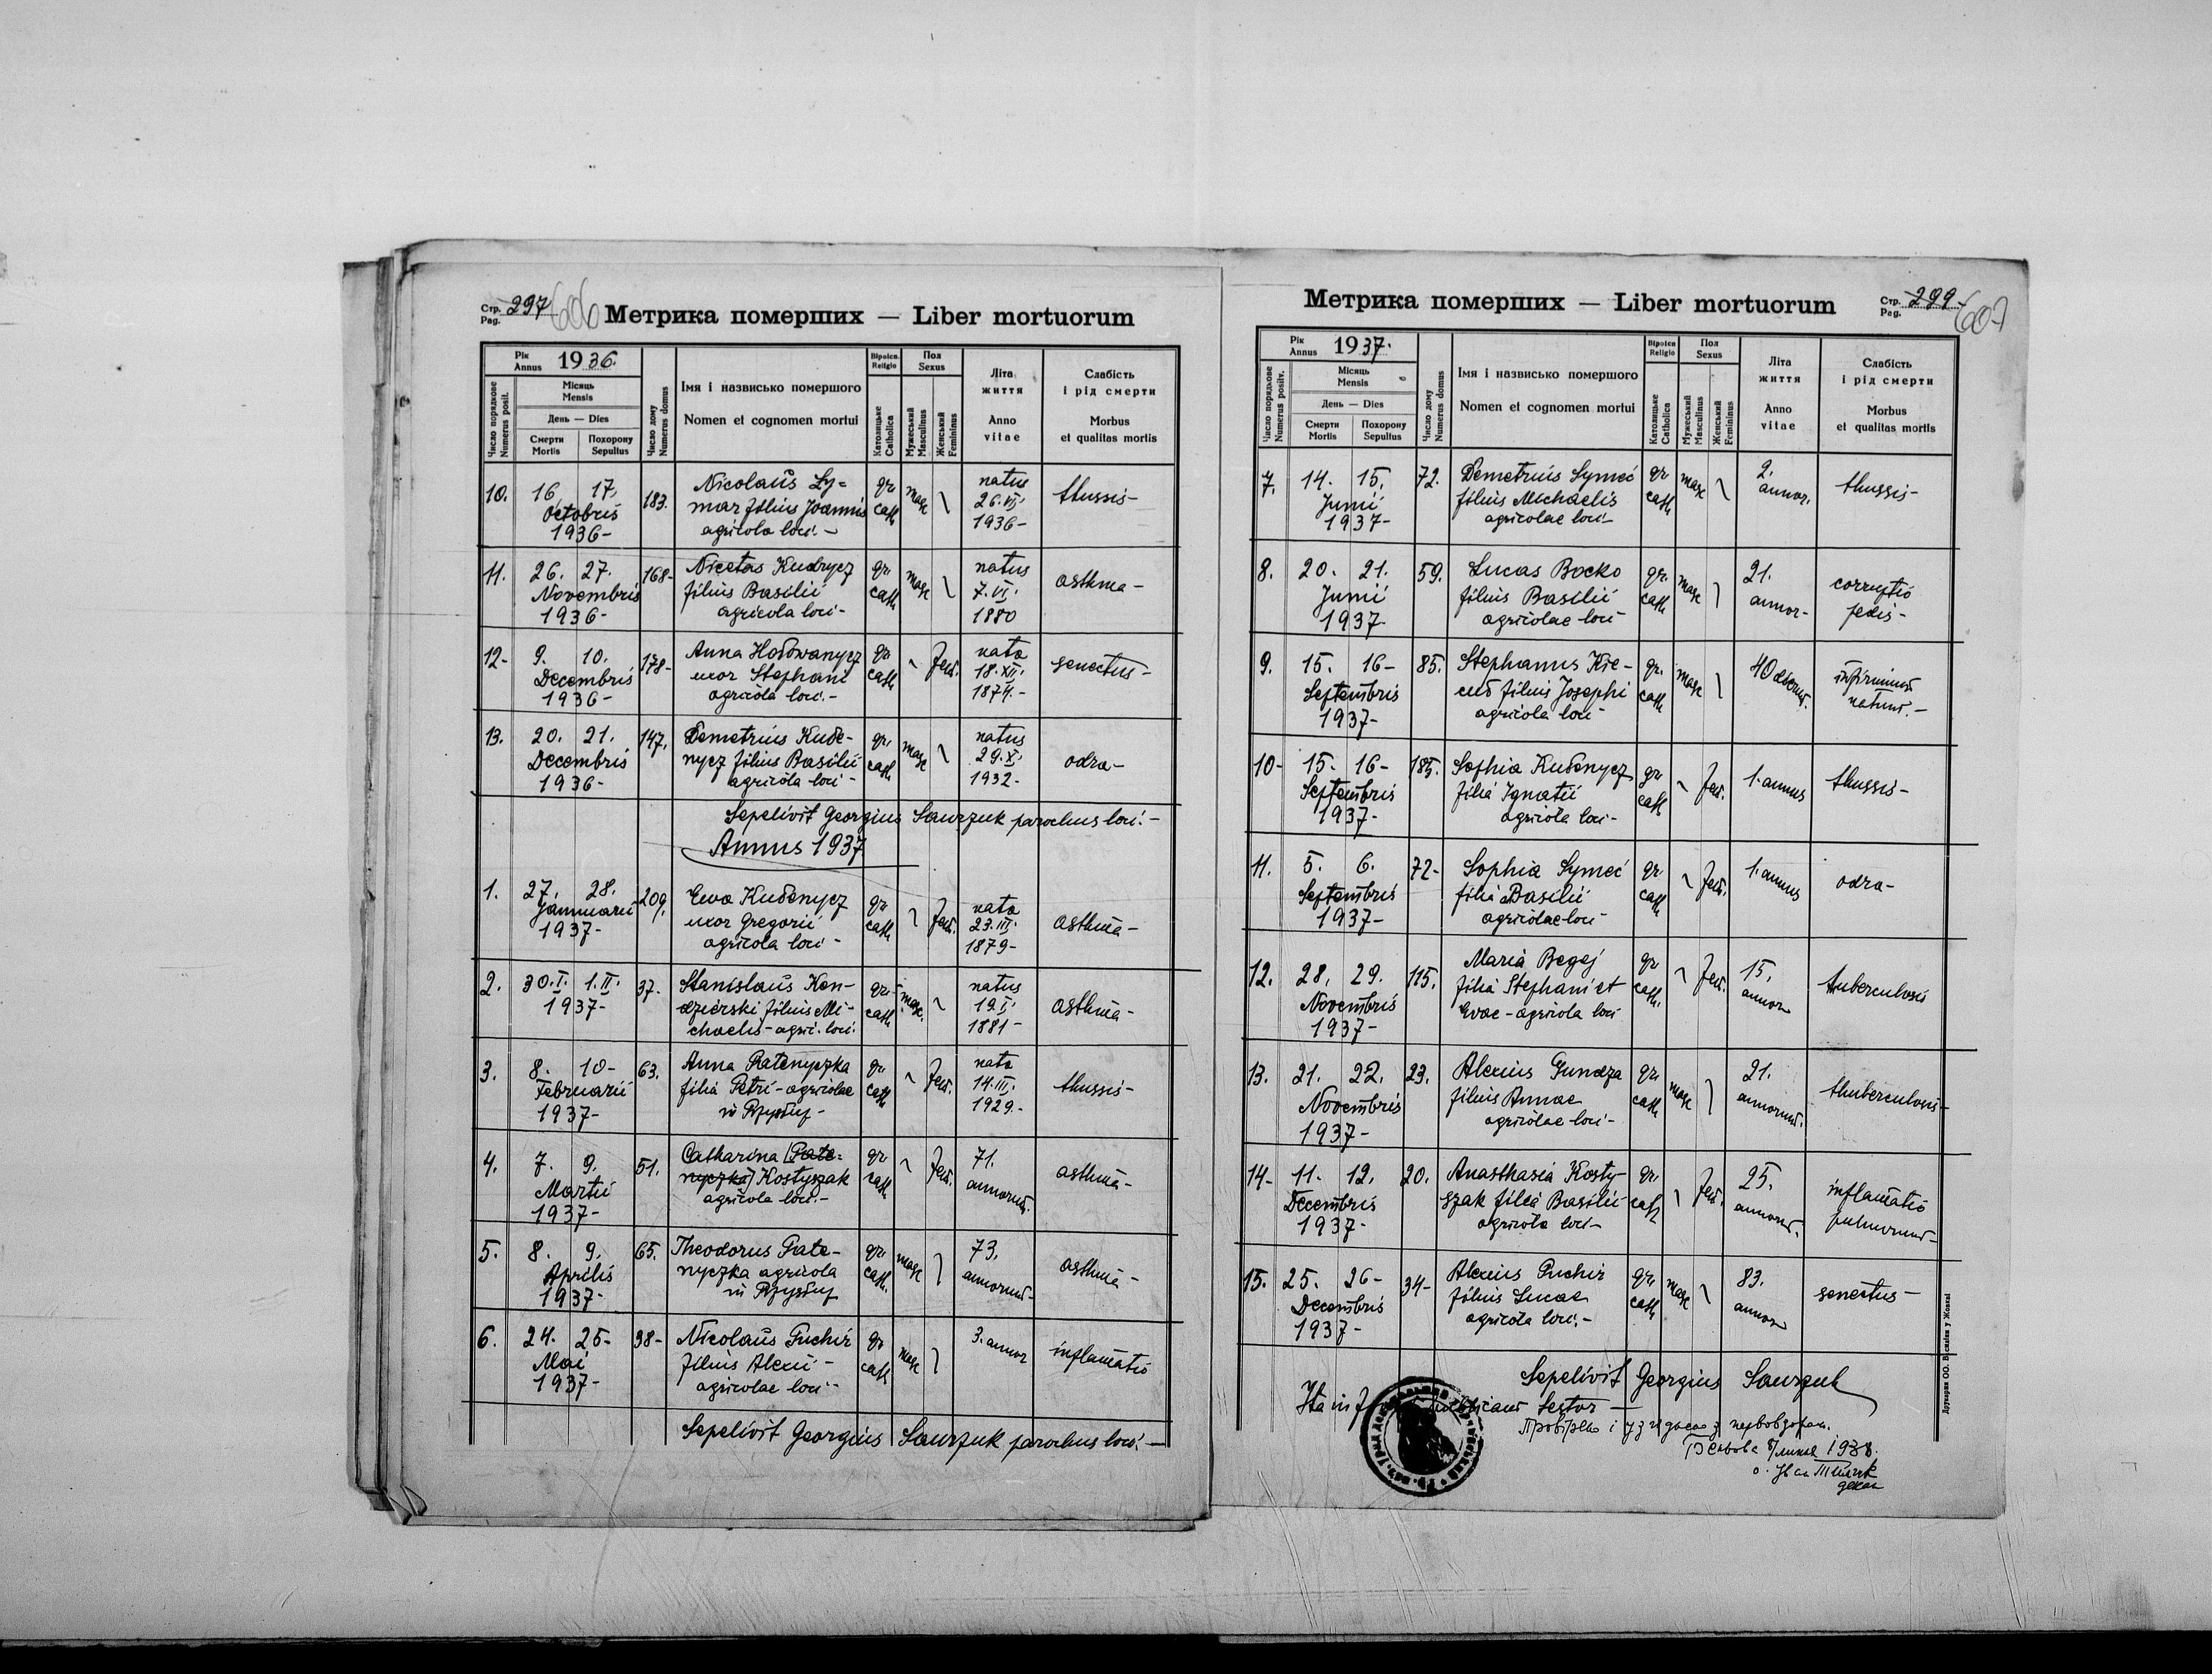 Стр. Pag. 297 606 Метрика померших — Liber mortuorum
Число порядкове Numerus posit.
Рік Annus 1936.
Місяць Mensis
День — Dies
Смерти Mortis
Похорону Sepultus
Число дому Numerus domus
Імя і назвисько помершого
Nomen et cognomen mortui
Віроісп. Religio
Католицьке Catholica
Пол Sexus
Мужеський Masculinus
Женський Femininus
Літа життя
Anno vitae
Слабість і рід смерти
Morbus et qualitas mortis
10. 16. 17. Octobris 1936- 183. Nicolaus Ly=
mar filius Joannis
agricola loci.- gr. cath masc natus 26.VI. 1936- thussis-
11. 26. 27. Novembris 1936- 168- Nicetas Kudrycz
filius Basilii
agricola loci- gr. cath masc natus 7.VI. 1880 asthma-
12- 9. 10. Decembris 1936- 178- Anna Hodowanycz
uxor Stephani
agricola loci.- gr. cath fem. nata 18.XII. 1874.- senectus-
13. 20. 21. Decembris 1936- 147. Demetrius Kube-
nycz filius Basilii
agricola loci- gr. cath masc natus 29.X. 1932- odra-
Sepelivit Georgius Sawczuk parochus loci.-
Annus 1937
1. 27. 28. Januarii 1937- 209. Ewa Kubenycz
uxor Gregorii
agricola loci- gr. cath fem. nata 23.III. 1879- asthma-
2. 30.I. 1.II. 1937- 37- Stanislaus Ken-
dzierski filius Mi-
chaelis-agri. loci. gr. cath masc. natus 19.I. 1881- asthma-
3. 8. 10- Februarii 1937- 63. Anna Patenyczka
filia Petri-agricolae
in gr. cath fem. nata 14.III. 1929.- thussis-
4. 7. 9. Martii 1937- 51. Catharina [Pate=
nyczka] Kostyszak
agricola loci.- gr. cath fem. 71. annorum. asthma-
5. 8. 9. Aprilis 1937- 65. Theodorus Pate-
nyczka agricola
in gr. cath. masc 73. annorum- asthma-
6. 24. 25- Mai 1937- 38- Nicolaus Puchir
filius Alexii-
agricolae loci- gr. cath masc 3. annor inflamatio
Sepelivit Georgius Sawczuk parochus loci.-
Метрика померших — Liber mortuorum Стр. Pag. 299 607
Число порядкове Numerus positv.
Рік Annus 1937.
Місяць Mensis
День — Dies
Смерти Mortis
Похорону Sepultus
Число дому Numerus domus
Імя і назвисько помершого
Nomen et cognomen mortui
Віроісп. Religio
Католицьке Catholica
Пол Sexus
Мужеський Masculinus
Женський Femininus
Літа життя
Anno vitae
Слабість і рід смерти
Morbus et qualitas mortis
7. 14. 15. Junii 1937- 72. Demetrius Symeć
filius Michaelis
agricolae loci- gr. cath masc 2. annor. thussis-
8. 20. 21. Junii 1937- 59. Lucas Bocko
filius Basilii
agricolae loci gr. cath masc 21. annor- corruptio pedis-
9. 15. 16- Septembris 1937- 85. Stephanus
filius Josephi
agricola loci- gr. cath masc 40
10- 15. 16- Septembris 1937- 185. Sophia Kubenycz
filia Ignatii
agricola loci- gr. cath fem. 1. annus thussis-
11. 5. 6. Septembris 1937- 72- Sophia Symeć
filia Basilii
agricolae loci- gr. cath fem. 1. annus odra-
12. 28. 29. Novembris 1937- 115. Maria Begej
filia Stephani et
Evae-agricola loci gr. cath. fem. 15. annor tuberculosis
13. 21. 22. Novembris 1937- 23. Alexius Gundza
filius Annae
agricolae loci- gr. cath masc 21. annorum. thuberculosis-
14- 11. 12. Decembris 1937- 20. Anasthasia Kosty-
szak filia Basilii
agricola loci- gr. cath fem. 25. annorum. inflamatio pulmonum-
15. 25. 26- Decembris 1937- 34- Alexius Puchir
filius Lucae
agricola loci.- gr. cath masc 83. annor senectus-
Sepelivit Georgius Sawczuk
Ita in
Провірено і
1938.
декан